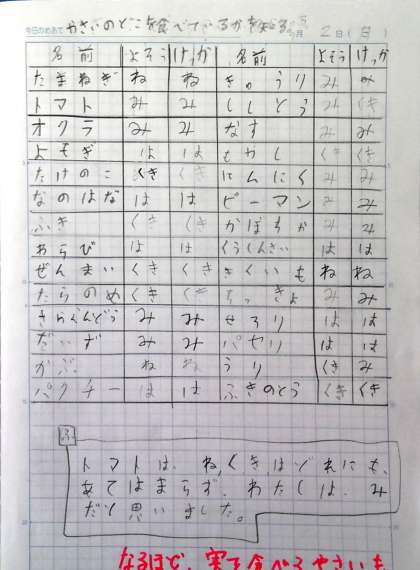 今日のめあて やさいのどこを食べているかを知る。 5月 2日(月)
名前 よそう けっか 名前 よそう けっか
たまねぎ ね ね きゅうり み み
トマト み み ししとう み くき
オクラ み み なす み み
よもぎ は は もやし くき くき
たけのこ くき くき にんにく み み
なのはな は は ピーマン み み
ふき くき くき かぼちゃ み み
わらび は は くうしんさい は は
ぜんまい くき くき きくいも ね ね
たらのめ くき くき み み
さやえんどう み み せろり は は
だいず み み パセリ は は
かぶ ね ね うり くき み
パクチー は は ふきのとう くき くき
ふ
トマトは、ね、くきはどれにも、
あてはまらず、わたしは、み
だと思いました。
なるほど、実を食べるやさいも